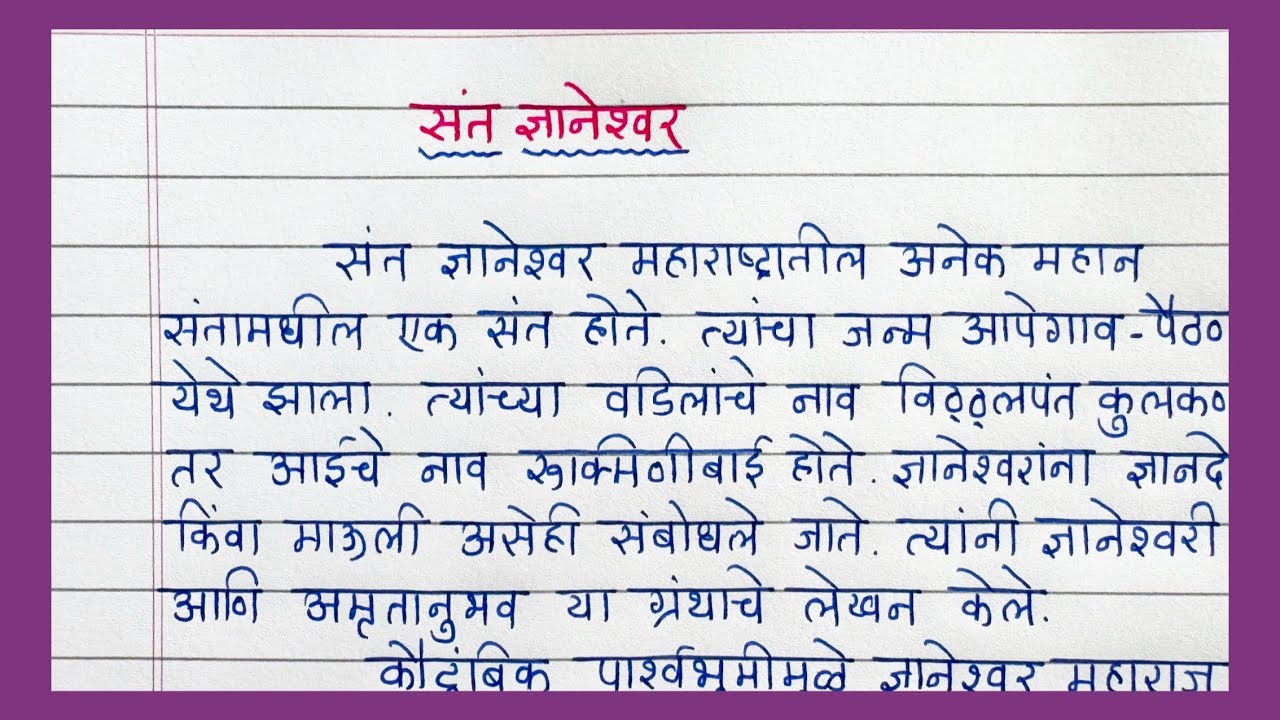 संत ज्ञानेश्वर
संत ज्ञानेश्वर महाराष्ट्रातील अनेक महान
संतामधील एक संत होते. त्यांचा जन्म आपेगाव-पैठ
येथे झाला. त्यांच्या वडिलांचे नाव विठ्ठलपंत कुलक
तर आईचे नाव रूक्मिणीबाई होते. ज्ञानेश्वरांना ज्ञानदे
किंवा माऊली असेही संबोधले जाते. त्यांनी ज्ञानेश्वरी
आणि अमृतानुभव या ग्रंथाचे लेखन केले.
कौटुंबिक पार्श्वभूमीमुळे ज्ञानेश्वर महाराज